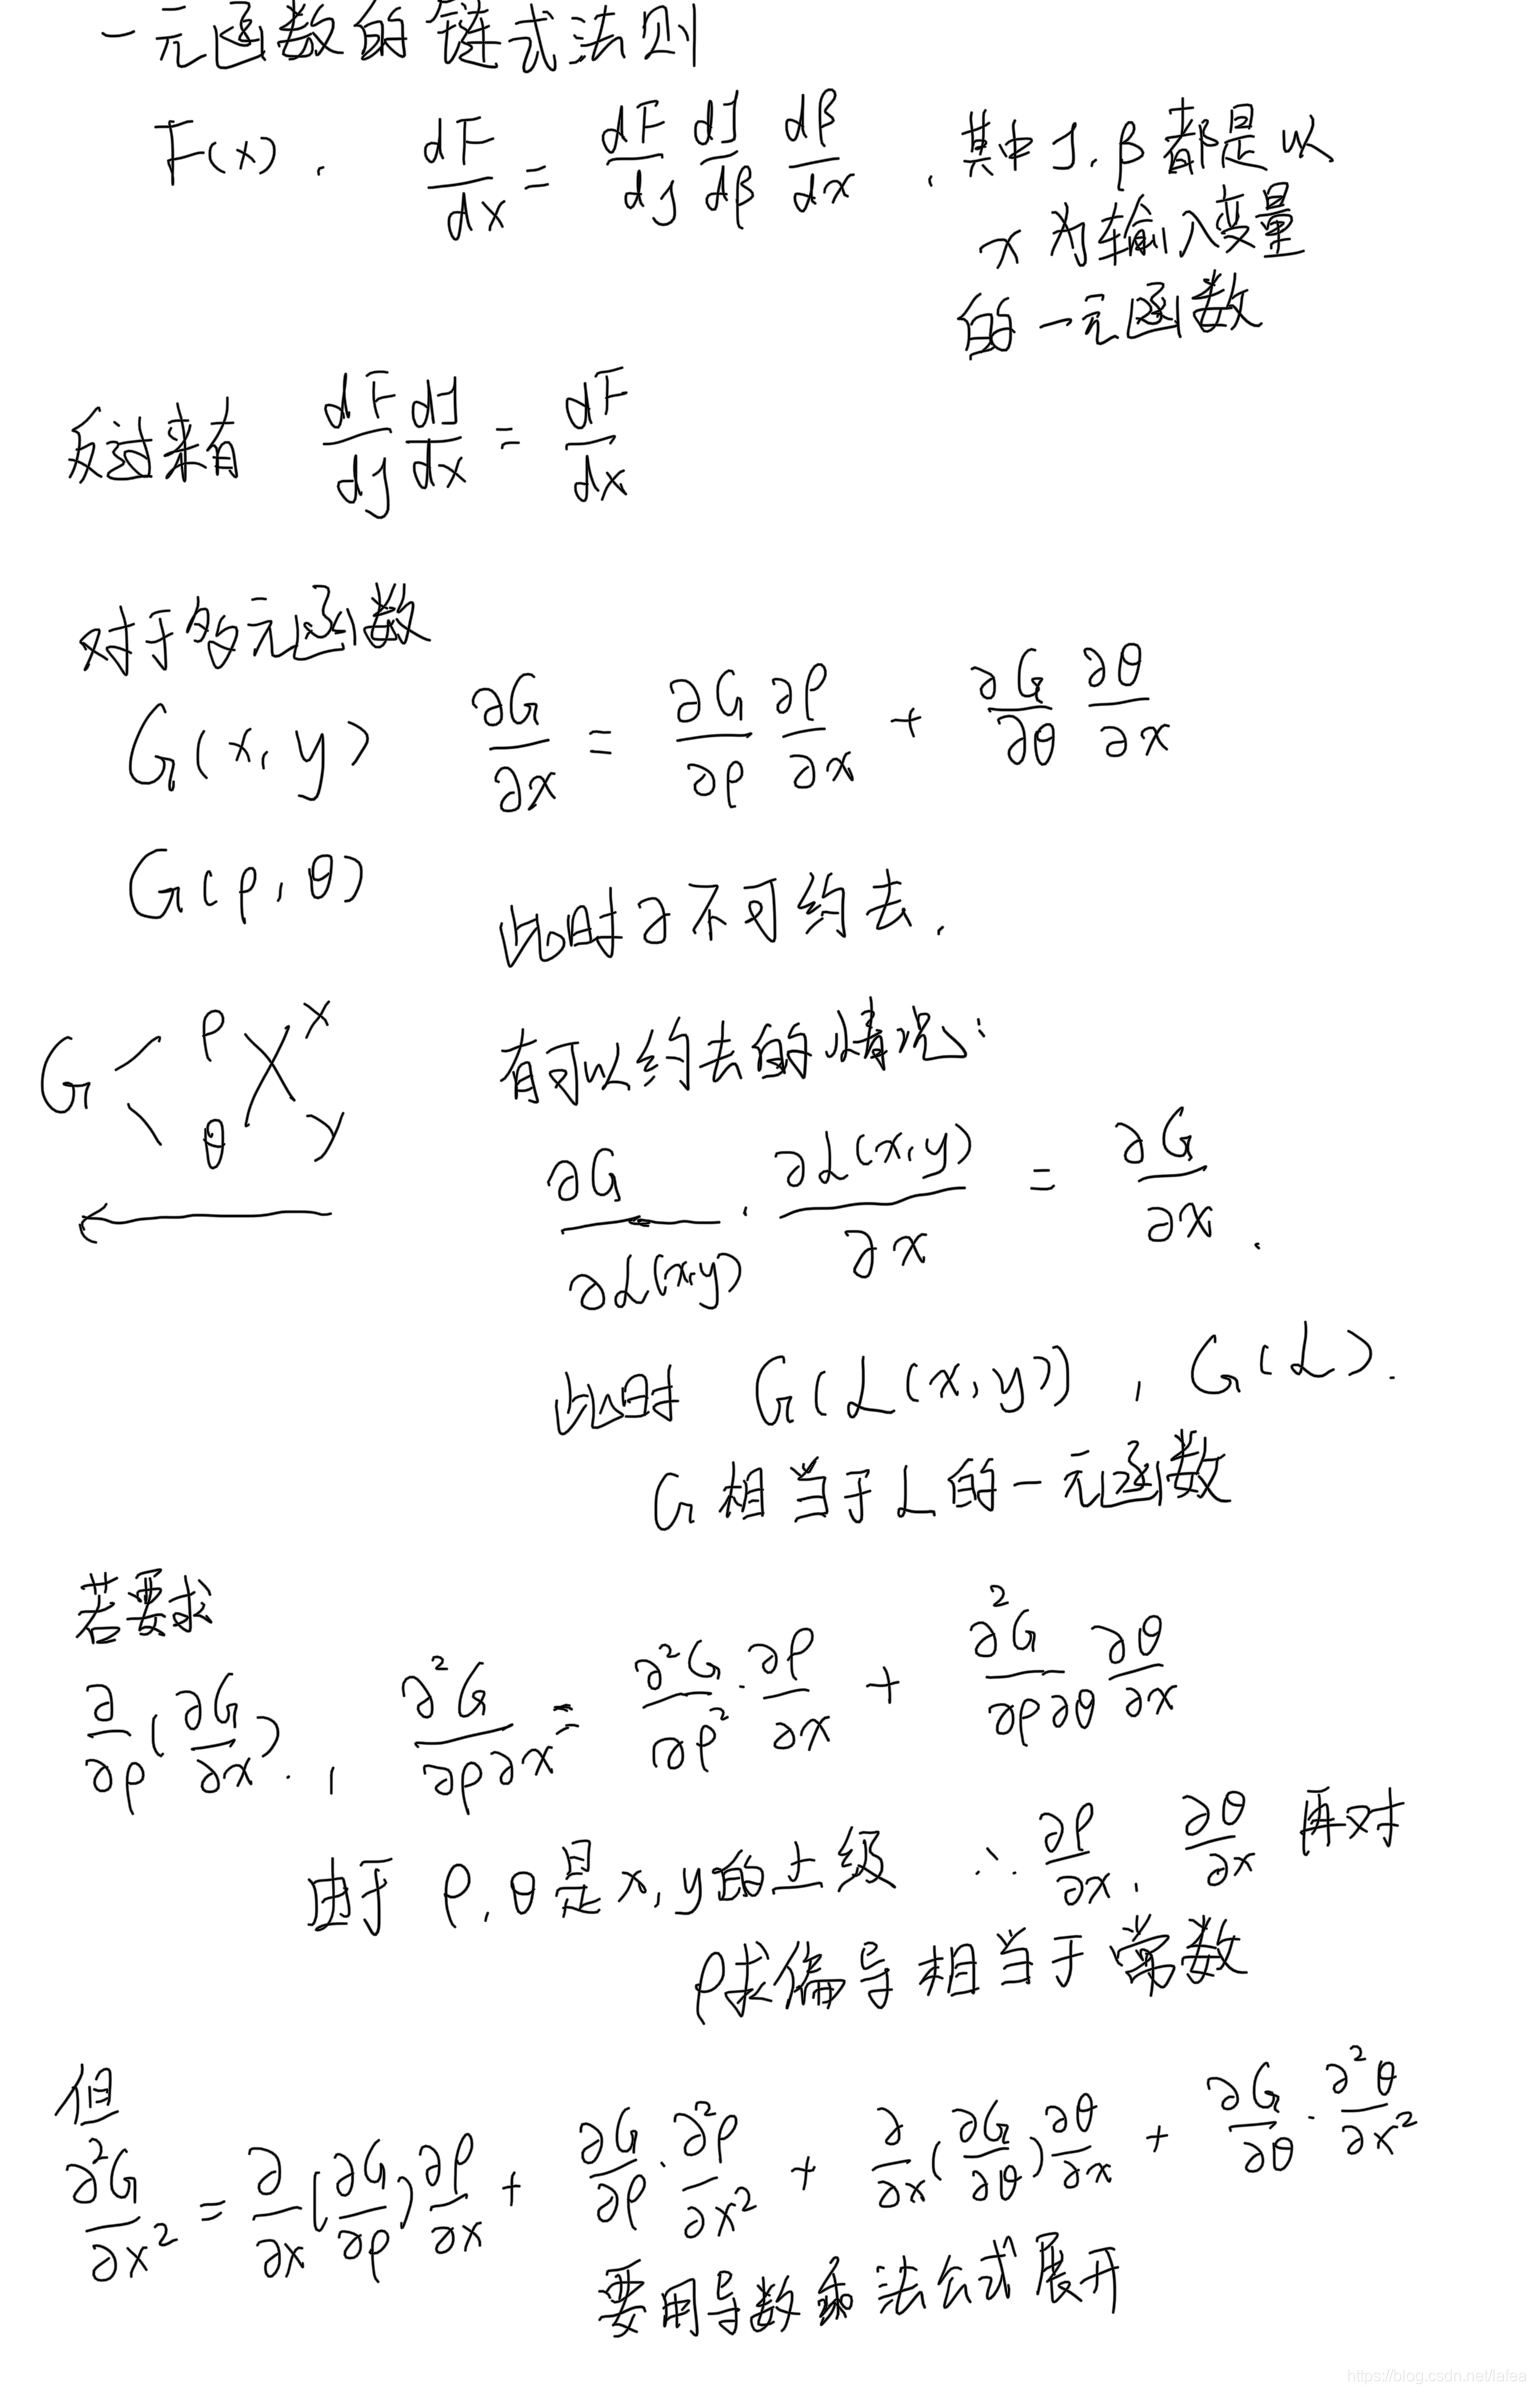 一元函数的链式法则
F(x). dF/dx = dF/dg dg/dβ dβ/dx . 其中 g, β 都是以
x 为输入变量
的一元函数
反过来有 dF/dg dg/dx = dF/dx
对于多元函数
G(x, y) ∂G/∂x = ∂G/∂ρ ∂ρ/∂x + ∂G/∂θ ∂θ/∂x
G(ρ, θ)
此时∂不可约去.
G < ρ θ x y
有可以约去的情况:
∂G/∂L(x,y) · ∂L(x,y)/∂x = ∂G/∂x .
此时 G(L(x,y)) , G(L).
G 相当于 L 的一元函数
若要求
∂/∂ρ(∂G/∂x). , ∂²G/∂ρ∂x = ∂²G/∂ρ² · ∂ρ/∂x + ∂²G/∂ρ∂θ ∂θ/∂x
由于 ρ, θ是x, y的上级 ∴ ∂ρ/∂x, ∂θ/∂x 再对
ρ求偏导相当于常数
但
∂²G/∂x² = ∂/∂x(∂G/∂ρ)∂ρ/∂x + ∂G/∂ρ · ∂²ρ/∂x² + ∂/∂x(∂G/∂θ)∂θ/∂x + ∂G/∂θ · ∂²θ/∂x²
要用导数乘法公式展开
https://blog.csdn.net/lafea